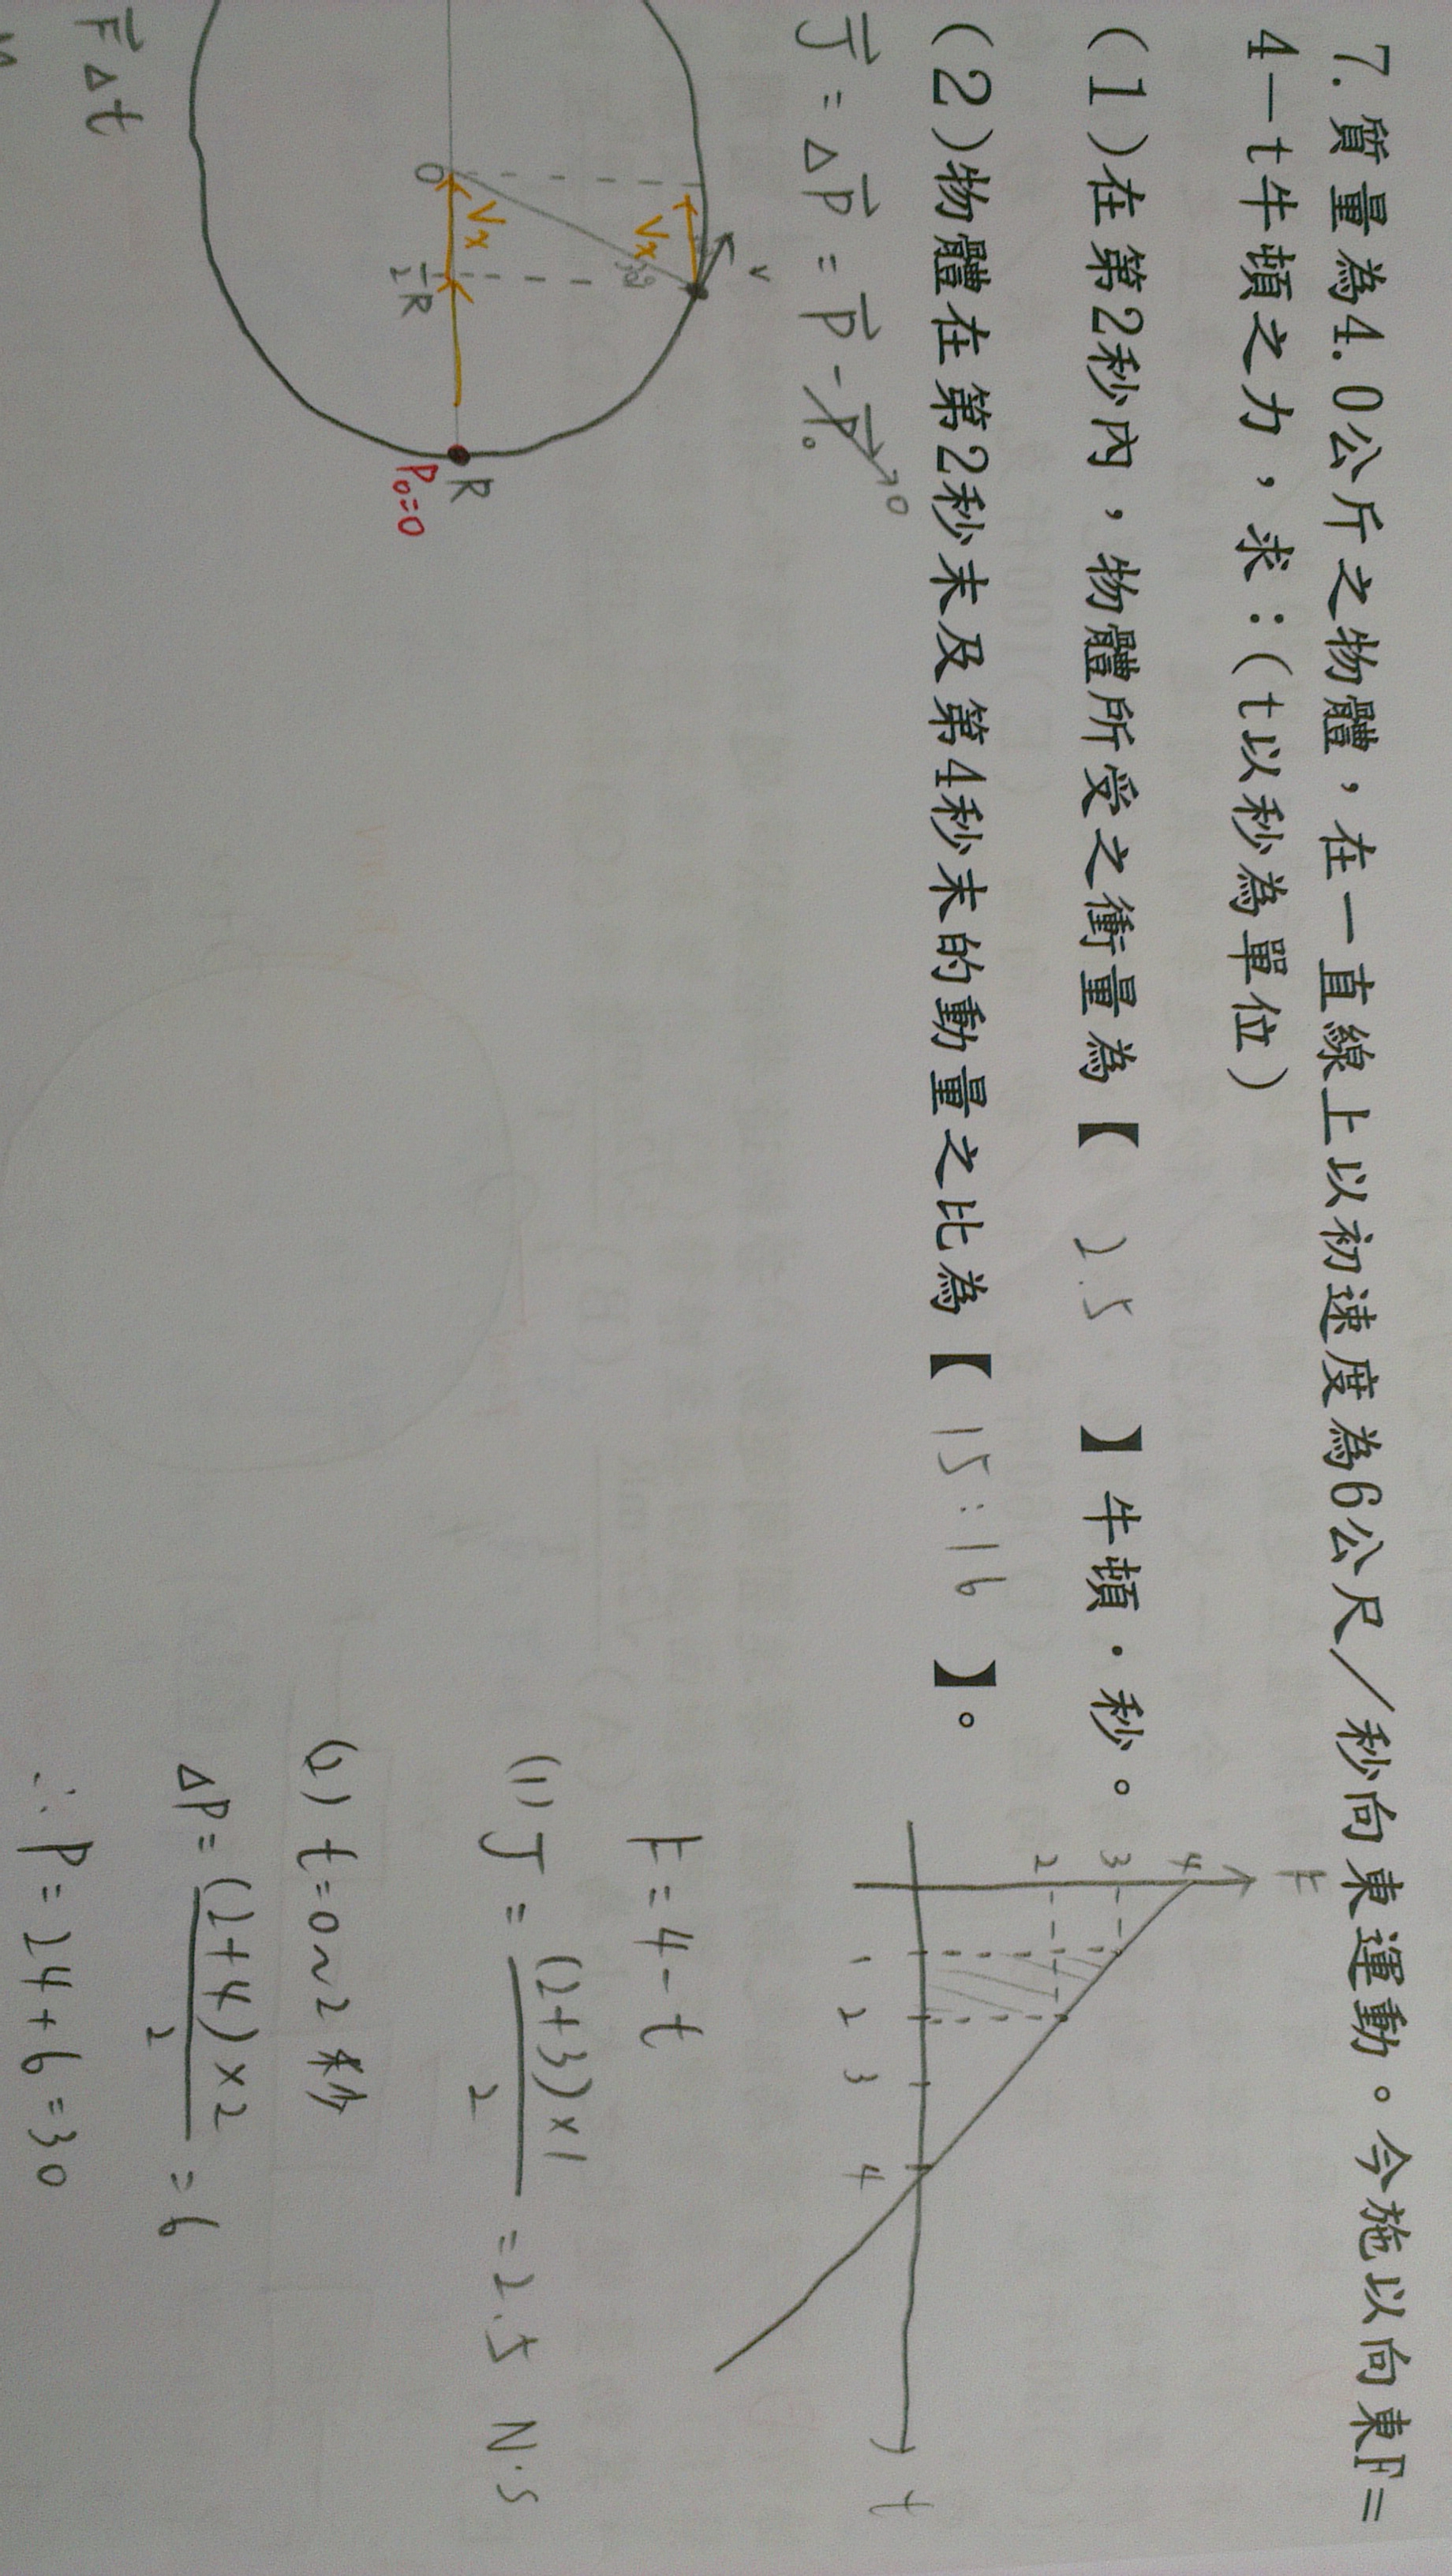 7. 質量為4.0公斤之物體，在一直線上以初速度為6公尺／秒向東運動。今施以向東F＝
4－t牛頓之力，求：(t以秒為單位)
(1)在第2秒內，物體所受之衝量為【 2.5 】牛頓．秒。
(2)物體在第2秒末及第4秒末的動量之比為【 15:16 】。
J = ΔP = P - P₀ → 0
v
Vx
30°
O
Vx
½R
R
P₀=0
F Δt
F
4
3
2
1 2 3 4
t
F = 4 - t
(1) J = (2+3)×1 / 2 = 2.5 N·s
(2) t=0~2 秒
ΔP = (2+4)×2 / 2 = 6
∴ P = 24 + 6 = 30